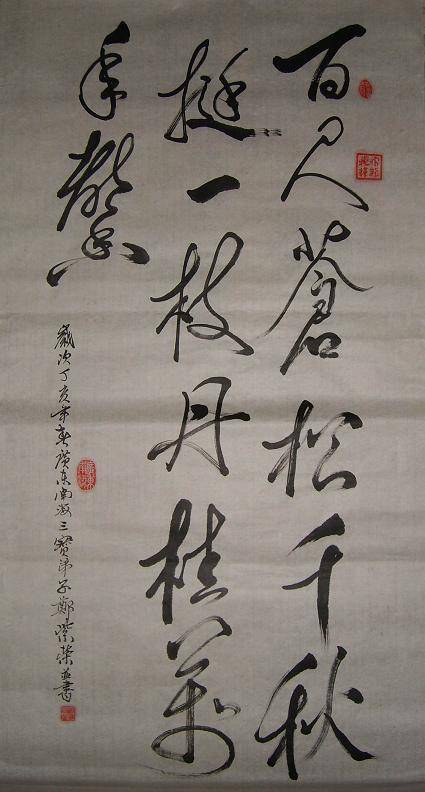 百尺蒼松千秋
挺一枝丹桂萬
年馨
歲次丁亥年春廣東南海三寶弟子鄭紫榮並書